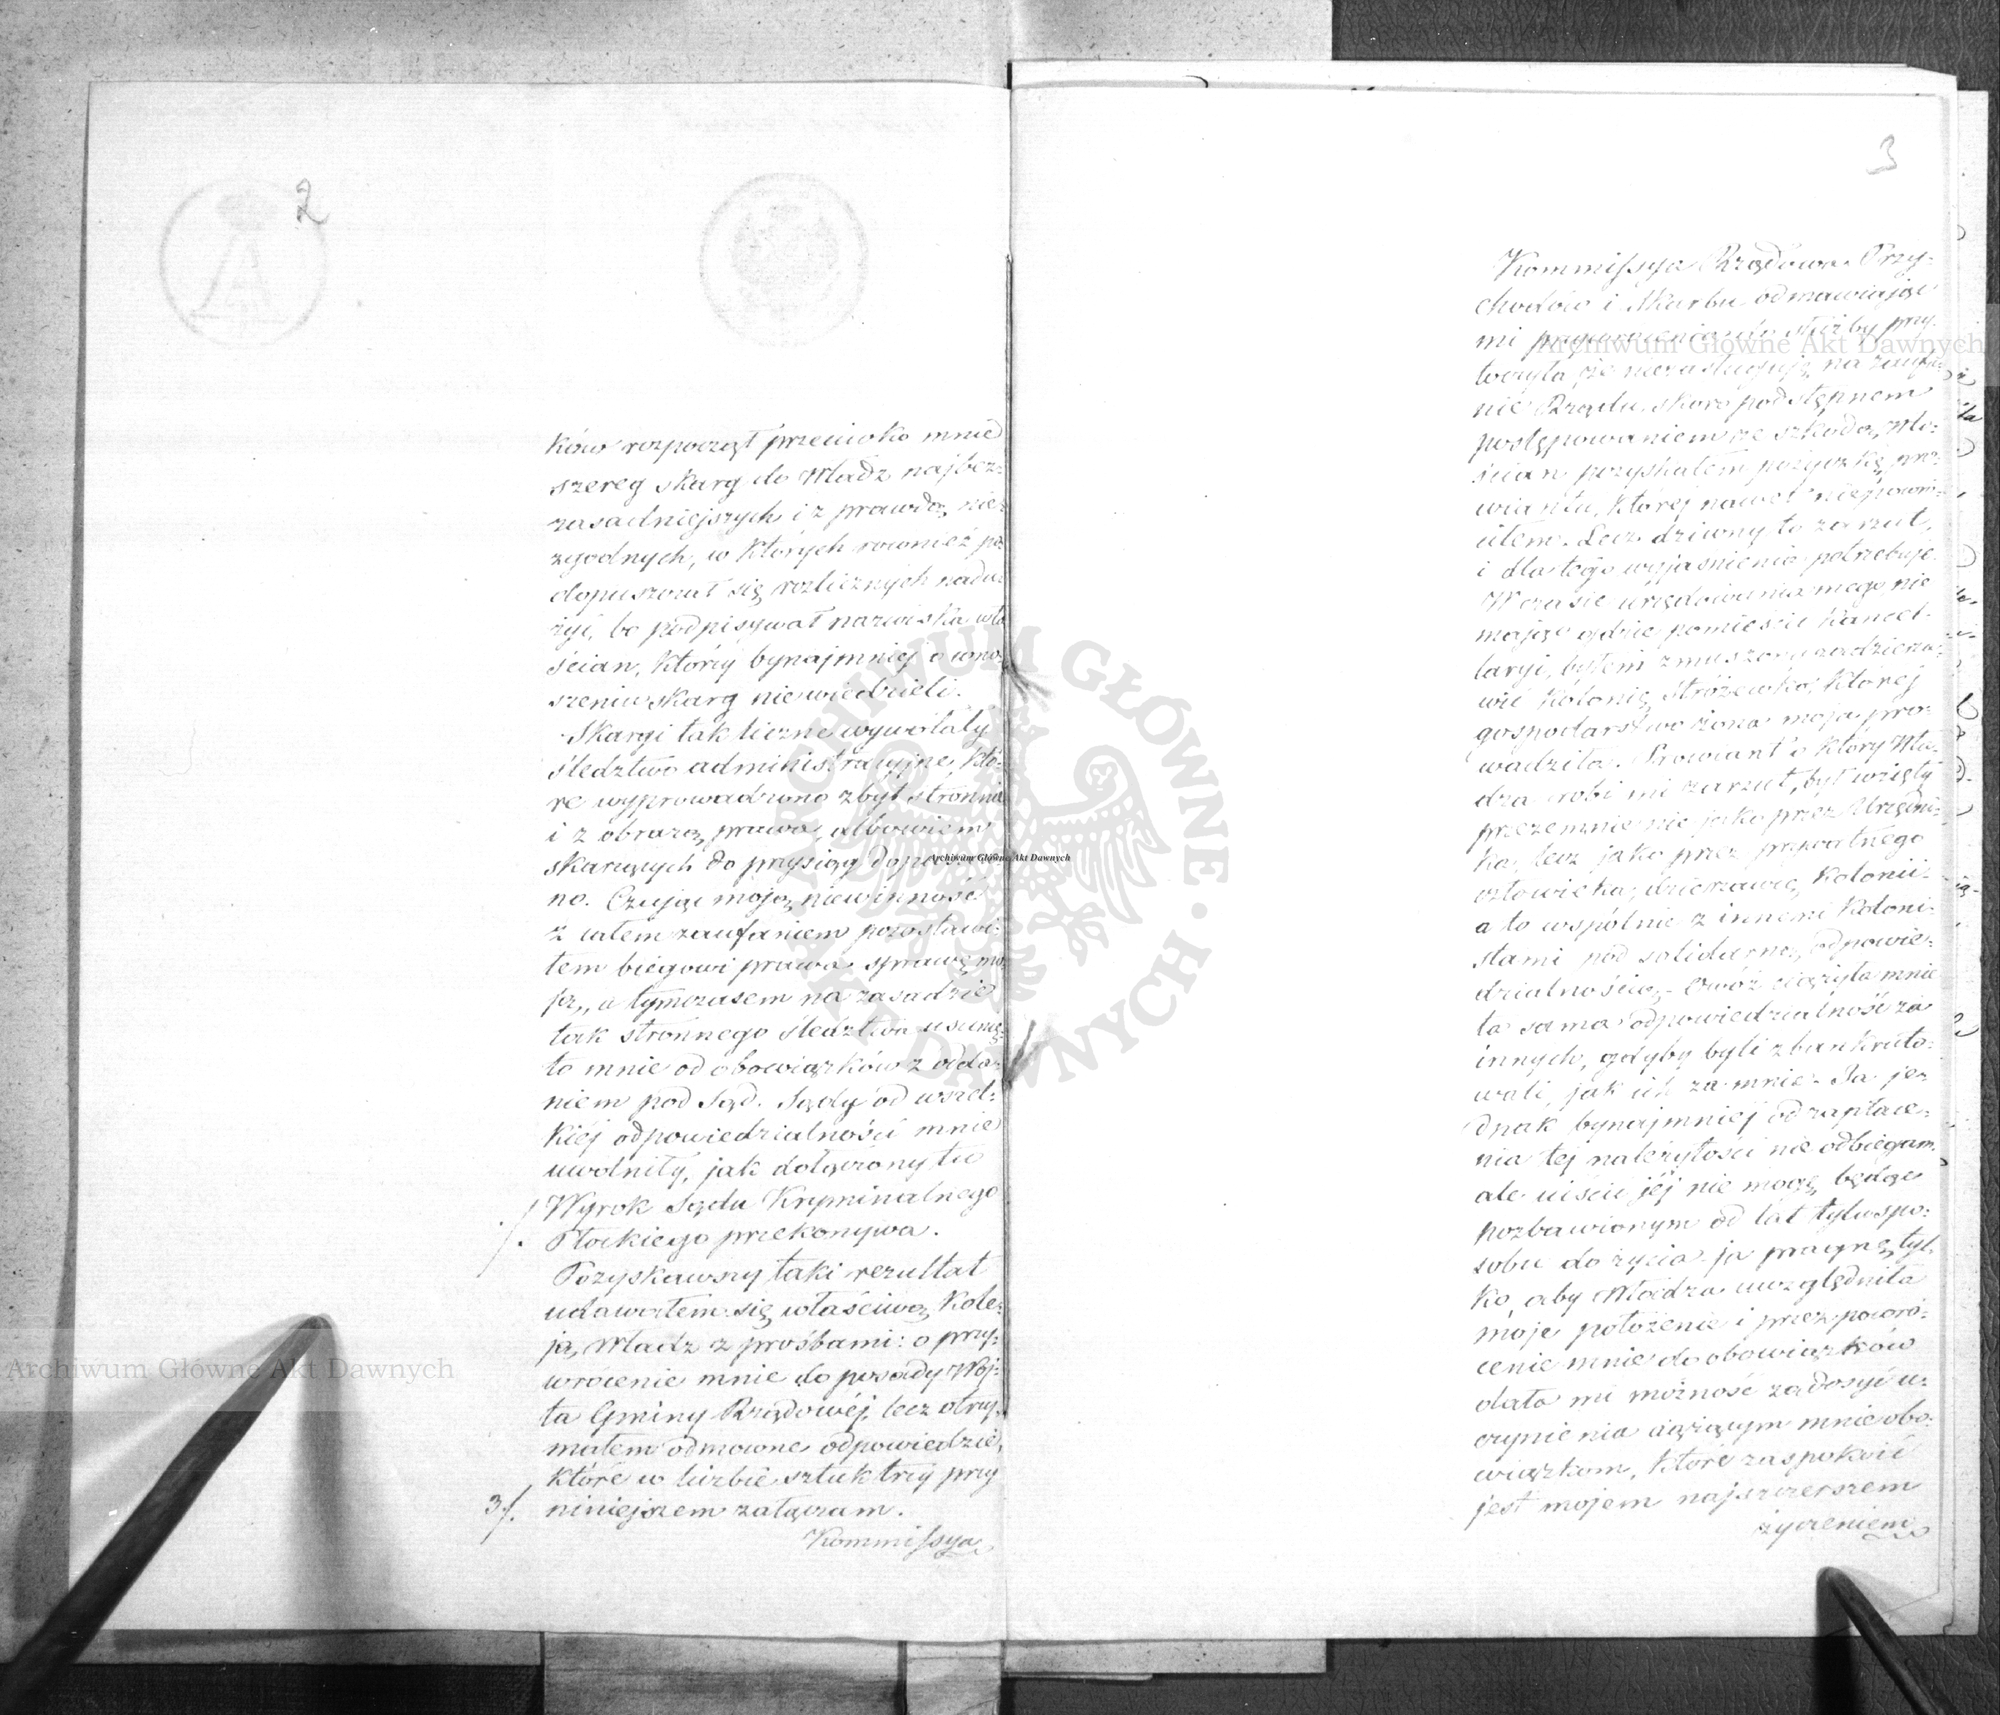 2
ków rozpoczął przeciwko mnie
szereg skarg do Władz najbez-
zasadniejszych i z prawdą nie-
zgodnych, w których również po-
dopuszczał się rozlicznych nadu-
żyć, bo podpisywał nazwiska wło
ścian, którzy bynajmniej o wno-
szeniu skarg nie wiedzieli.
Skargi tak liczne wywołały
śledztwo administracyjne, któ-
re wyprowadzono zbyt stronnie
i z obrazą prawa, albowiem
skarżących do przysiąg dopuszczo-
no. Czując moją niewinność
z całem zaufaniem pozostawi-
łem biegowi prawa sprawę mo-
ję, a tymczasem na zasadzie
tak stronnego śledztwa usunię-
to mnie od obowiązków z odda-
niem pod Sąd. Sądy od wszel-
kiéj odpowiedzialności mnie
uwolniły, jak dołączony tu
Wyrok Sądu Kryminalnego
./. Płockiego przekonywa.
Pozyskawszy taki rezultat
udawałem się właściwą kole-
ją Władz z prośbami: o przy-
wrócenie mnie do posady Wój-
ta Gminy Rządowéj, lecz otrzy-
małem odmowne odpowiedzie,
które w liczbie sztuk trzy przy
3/. niniejszem załączam.
Kommissya
3
Kommissya Rządowa Przy-
chodów i Skarbu odmawiając
mi przywrócenia do służby przy-
toczyła, że nie zasługuję na zaufa-
nie Rządu, skoro podstępnem
postępowaniem ze szkodą Wło-
ścian pozyskałem pożyczkę pro-
wiantu, której nawet niepowró-
ciłem. Lecz dziwny to zarzut,
i dla tego wyjaśnienia potrzebuje.
W czasie urzędowania mego, nie
mając gdzie pomieścić Kancel-
laryi, byłem zmuszony zadzierża-
wić Kolonię Stróżewko, której
gospodarstwo żona moja pro-
wadziła. Prowiant o który Wła-
dza robi mi zarzut, był wzięty
przezemnie nie jako przez Urzędni-
ka, lecz jako przez prywatnego
człowieka, dzierżawcę Kolonii
a to wspólnie z innemi Koloni-
stami pod solidarną odpowie-
dzialnością. Owóż ciężyła mnie
ta sama odpowiedzialność za
innych, gdyby byli zbankruto-
wali, jak ich za mnie. Ja je-
dnak bynajmniej od zapłace-
nia tej należytości nie odbiegam,
ale uiścić jéj nie mogę będąc
pozbawionym od lat tylu spo-
sobu do życia. ja pragnę tyl-
ko, aby Władza uwzględniła
moje położenie i przez powró-
cenie mnie do obowiązków
dała mi możność zadosyć u-
czynienia ciążącym mnie obo-
wiązkom, które zaspokoić
jest mojem najszczerszem
życzeniem
Archiwum Główne Akt Dawnych
Archiwum Główne Akt Dawnych
Archiwum Główne Akt Dawnych
ARCHIWUM GŁÓWNE AKT DAWNYCH